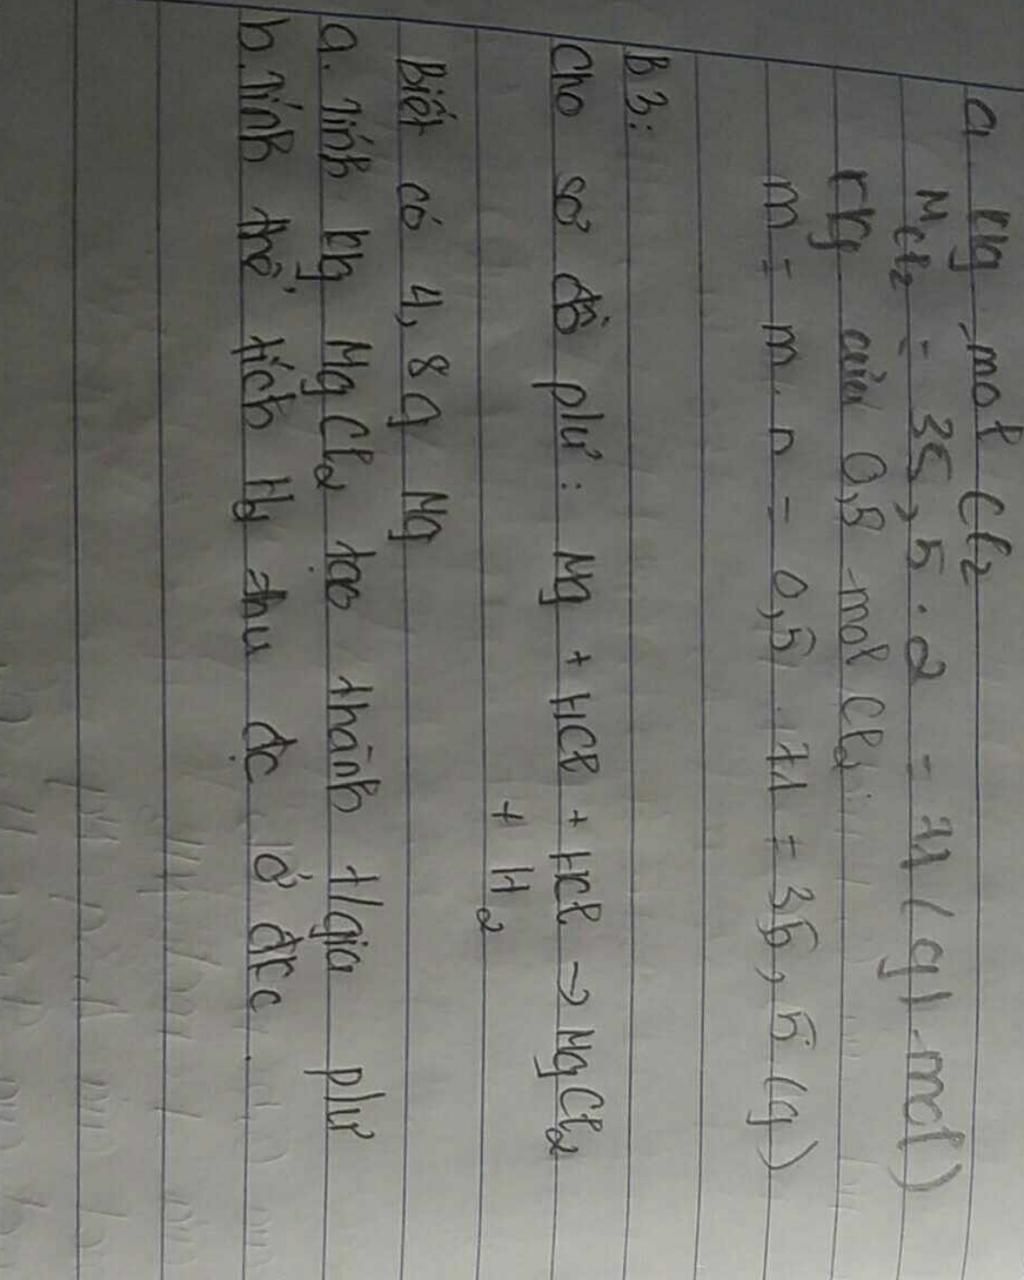 a. klg mol Cl2
MCl2 = 35,5 . 2 = 71 (g/mol)
klg của 0,5 mol Cl2:
m = m . n = 0,5 . 71 = 35,5 (g)
B3:
Cho sơ đồ plư: Mg + HCl + HCl → MgCl2
+ H2
Biết có 4,8g Mg
a. Tính klg MgCl2 tạo thành t/gia plư
b. Tính thể tích H2 thu đc ở đktc.